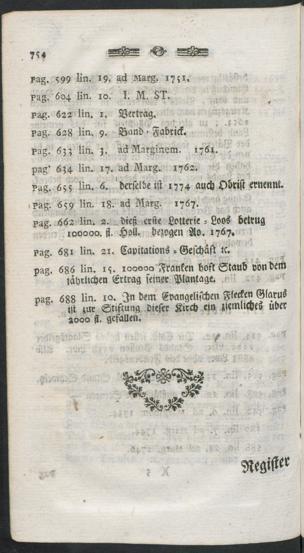 754
pag. 599 lin. 19. ad Marg. 1751.
pag. 604 lin. 10. I. M. ST.
pag. 622 lin. 1. Vertrag.
pag. 628 lin. 9. Band-Fabrick.
pag. 633 lin. 3. ad Marginem. 1761.
pag. 634 lin. 17. ad Marg. 1762.
pag. 655 lin. 6. derselbe ist 1774 auch Obrist ernennt.
pag. 659 lin. 18. ad Marg. 1767.
pag. 662 lin. 2. dieß erste Lotterie-Loos betrug
100000. fl. Holl. bezogen Ao. 1767.
pag. 681 lin. 21. Capitations-Geschäft ꝛc.
pag. 686 lin. 15. 100000 Franken host Staub von dem
jährlichen Ertrag seiner Plantage.
pag. 688 lin. 10. In dem Evangelischen Flecken Glarus
ist zur Stiftung dieser Kirch ein ziemliches über
2000 fl. gefallen.
Register